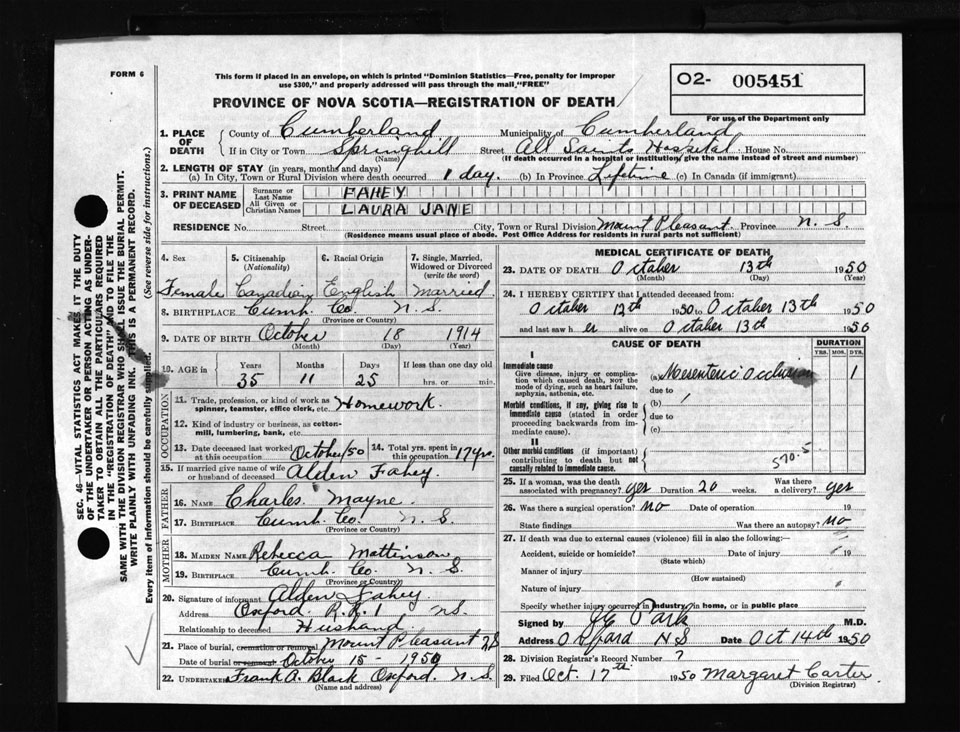 FORM 6
This form if placed in an envelope, on which is printed "Dominion Statistics—Free, penalty for improper
use $300," and properly addressed will pass through the mail "FREE"
O2- 005451
For use of the Department only
PROVINCE OF NOVA SCOTIA—REGISTRATION OF DEATH
1. PLACE OF DEATH { County of Cumberland Municipality of Cumberland
If in City or Town Springhill Street All Saints Hospital House No.
(Name) (If death occurred in a hospital or institution, give the name instead of street and number)
2. LENGTH OF STAY (in years, months and days)
(a) In City, Town or Rural Division where death occurred 1 day. (b) In Province Lifetime (c) In Canada (if immigrant)
3. PRINT NAME OF DECEASED { Surname or Last Name FAHEY
All Given or Christian Names LAURA JANE
RESIDENCE No. Street City, Town or Rural Division Mount Pleasant Province N. S.
(Residence means usual place of abode. Post Office Address for residents in rural parts not sufficient)
4. Sex 5. Citizenship (Nationality) 6. Racial Origin 7. Single, Married, Widowed or Divorced (write the word)
Female Canadian English Married
8. BIRTHPLACE Cumb. Co. N. S.
(Province or Country)
9. DATE OF BIRTH October 18 1914
(Month) (Day) (Year)
10. AGE in Years Months Days If less than one day old
35 11 25 hrs. or min.
OCCUPATION
11. Trade, profession, or kind of work as spinner, teamster, office clerk, etc. Homework.
12. Kind of industry or business, as cotton-mill, lumbering, bank, etc.
13. Date deceased last worked at this occupation October/50 14. Total yrs. spent in this occupation 17 yrs.
15. If married give name of wife or husband of deceased Alden Fahey.
FATHER
16. NAME Charles Mayne.
17. BIRTHPLACE Cumb. Co. N. S.
(Province or Country)
MOTHER
18. MAIDEN NAME Rebecca Mattinson
19. BIRTHPLACE Cumb. Co. N. S.
(Province or Country)
20. Signature of informant Alden Fahey.
Address Oxford. R.R. 1 NS.
Relationship to deceased Husband
21. Place of burial, cremation or removal Mount Pleasant NS
Date of burial or removal October 15 - 1950
22. UNDERTAKER Frank A. Black Oxford. N. S.
(Name and address)
MEDICAL CERTIFICATE OF DEATH
23. DATE OF DEATH October 13th 1950
(Month) (Day) (Year)
24. I HEREBY CERTIFY that I attended deceased from
October 12th 1950 to October 13th 1950
and last saw h er alive on October 13th 1950
CAUSE OF DEATH DURATION
YRS. MOS. DYS.
I
Immediate cause
Give disease, injury or complication which caused death, NOT the mode of dying, such as heart failure, asphyxia, asthenia, etc.
(a) Mesenteric Occlusion 1
due to
Morbid conditions, if any, giving rise to immediate cause (stated in order proceeding backwards from immediate cause).
(b)
due to
(c)
II
Other morbid conditions (if important) contributing to death but not causally related to immediate cause.
570.5
25. If a woman, was the death associated with pregnancy? yes Duration 20 weeks. Was there a delivery? yes
26. Was there a surgical operation? No Date of operation 19
State findings Was there an autopsy? No
27. If death was due to external causes (violence) fill in also the following:—
Accident, suicide or homicide? Date of injury 19
(State which)
Manner of injury
(How sustained)
Nature of injury
Specify whether injury occurred in industry, in home, or in public place
Signed by Park M.D.
Address Oxford NS Date Oct 14th 1950
28. Division Registrar's Record Number 7
29. Filed Oct. 17th 1950 Margaret Carter
(Division Registrar)
SEC. 46—VITAL STATISTICS ACT MAKES IT THE DUTY
OF THE UNDERTAKER OR PERSON ACTING AS UNDERTAKER TO OBTAIN ALL THE PARTICULARS REQUIRED
IN THE "REGISTRATION OF DEATH" AND TO FILE THE
SAME WITH THE DIVISION REGISTRAR WHO SHALL ISSUE THE BURIAL PERMIT.
WRITE PLAINLY WITH UNFADING INK. THIS IS A PERMANENT RECORD.
Every item of information should be carefully supplied. (See reverse side for instructions.)